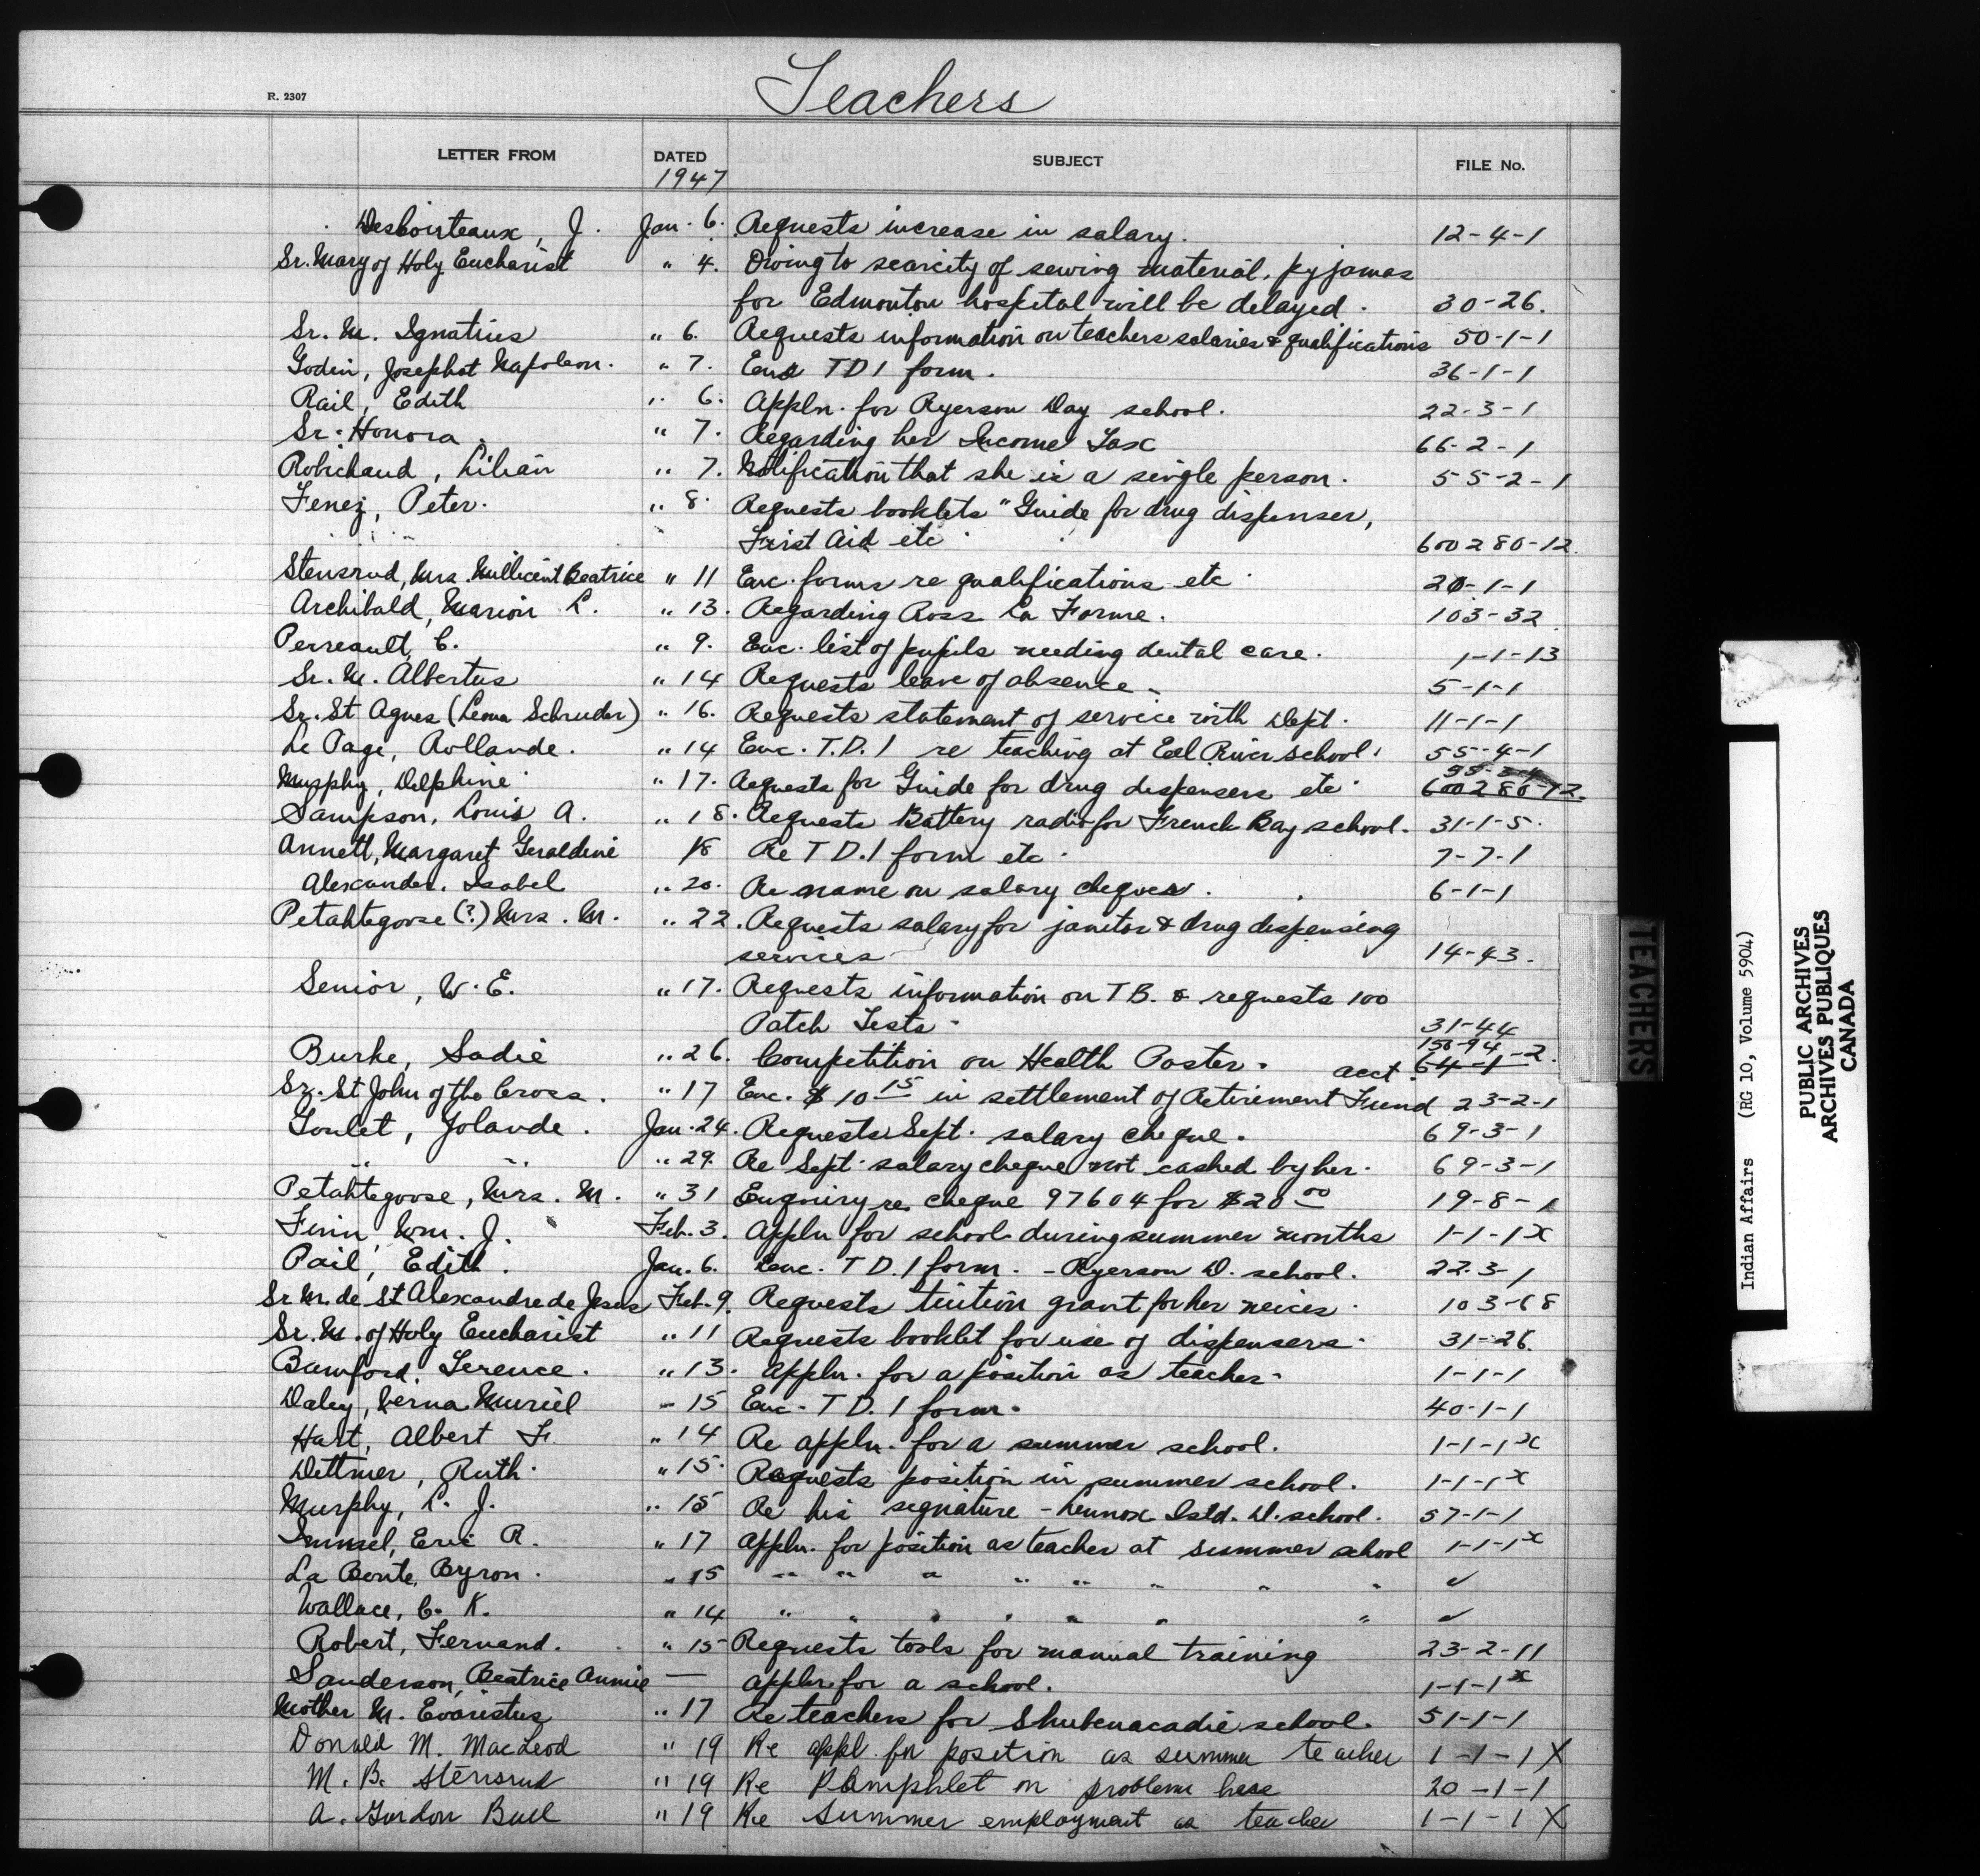 Teachers
R. 2307
LETTER FROM DATED SUBJECT FILE No.
1947
Desboisteaux, J. Jan. 6. Requests increase in salary. 12-4-1
Sr. Mary of Holy Eucharist " 4. Owing to scarcity of sewing material, pyjamas
for Edmonton hospital will be delayed. 30-26.
Sr. M. Ignatius " 6. Requests information on teachers salaries & qualifications 50-1-1
Godin, Josephat Napoleon. " 7. Enc TD1 form. 36-1-1
Rail, Edith " 6. Appln. for Ryerson Day school. 22-3-1
Sr. Honora. " 7. Regarding her Income Tax 66-2-1
Robichaud, Lilian " 7. Notification that she is a single person. 55-2-1
Fenez, Peter. " 8. Requests booklets "Guide for drug dispenser,
First Aid etc. 600280-12
Stensrud, Mrs. Millicent Beatrice " 11 Enc. forms re qualifications etc. 20-1-1
Archibald, Marion L. " 13. Regarding Ross La Forme. 103-32
Perreault, C. " 9. Enc. list of pupils needing dental care. 1-1-13
Sr. M. Albertus " 14 Requests leave of absence. 5-1-1
Sr. St Agnes (Leona Schruder) " 16. Requests statement of service with Dept. 11-1-1
Le Page, Rollande. " 14 Enc. T.D.1 re teaching at Eel River school. 55-4-1
Murphy, Delphine " 17. Requests for Guide for drug dispensers etc. 600280-12.
Sampson, Louis A. " 18. Requests Battery radio for French Bay school. 31-1-5.
Annett, Margaret Geraldine 18 Re T D.1 form etc. 7-7-1
Alexander, Isabel " 20. Re name on salary cheques. 6-1-1
Petahtegoose (?) Mrs. M. " 22. Requests salary for janitor & drug dispensing
services 14-43.
Senior, W. E. " 17. Requests information on TB. & requests 100
Patch Tests. 31-44
150-94
Burke, Sadie " 26. Competition on Health Poster. acct. 64-1-2.
Sr. St John of the Cross. " 17 Enc. $10 15 in settlement of Retirement Fund 23-2-1
Goulet, Yolande. Jan. 24. Requests Sept. salary cheque. 69-3-1
" " " 29. Re Sept. salary cheque not cashed by her. 69-3-1
Petahtegoose, Mrs. M. " 31 Enquiry re. cheque 97604 for $20 00 19-8-1
Finn, Wm. J. Feb. 3. Appln for school during summer months 1-1-1x
Pail, Edith. Jan. 6. Enc. T D.1 form. - Ryerson D. school. 22.3-1
Sr M. de St Alexandre de Jesus Feb. 9. Requests tuition grant for her neices. 103-68
Sr. M. of Holy Eucharist " 11 Requests booklet for use of dispensers. 31-26.
Bamford, Terence. " 13. Appln. for a position as teacher. 1-1-1
Daley, Verna Muriel " 15 Enc. T D.1 form. 40-1-1
Hart, Albert F. " 14 Re appln. for a summer school. 1-1-1x
Dettmer, Ruth. " 15. Requests position in summer school. 1-1-1x
Murphy, L. J. " 15 Re his signature - Lennox Isld. D. school. 57-1-1
Eric R. " 17 Appln. for position as teacher at summer school 1-1-1x
La Bonte, Byron. " 15 " " " " " " " " ✓
Wallace, C. K. " 14 " " " " " " " ✓
Robert, Fernand. " 15 Requests tools for manual training 23-2-11
Sanderson, Beatrice Annie — Appln. for a school. 1-1-1x
Mother M. Evaristus " 17 Re teachers for Shubenacadie school. 51-1-1
Donald M. MacLeod " 19 Re appl. for position as summer teacher 1-1-1 X
M. B. Stensrud " 19 Re Pamphlet on problems here 20-1-1
A. Gordon Bull " 19 Re Summer employment as teacher 1-1-1 X
TEACHERS
Indian Affairs (RG 10, Volume 5904)
PUBLIC ARCHIVES
ARCHIVES PUBLIQUES
CANADA